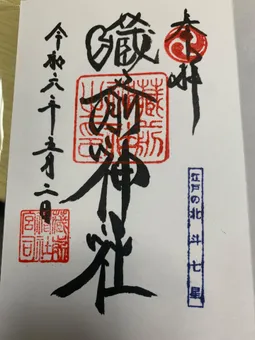 奉拝
江戸の北斗七星
蔵前神社
令和六年五月二日